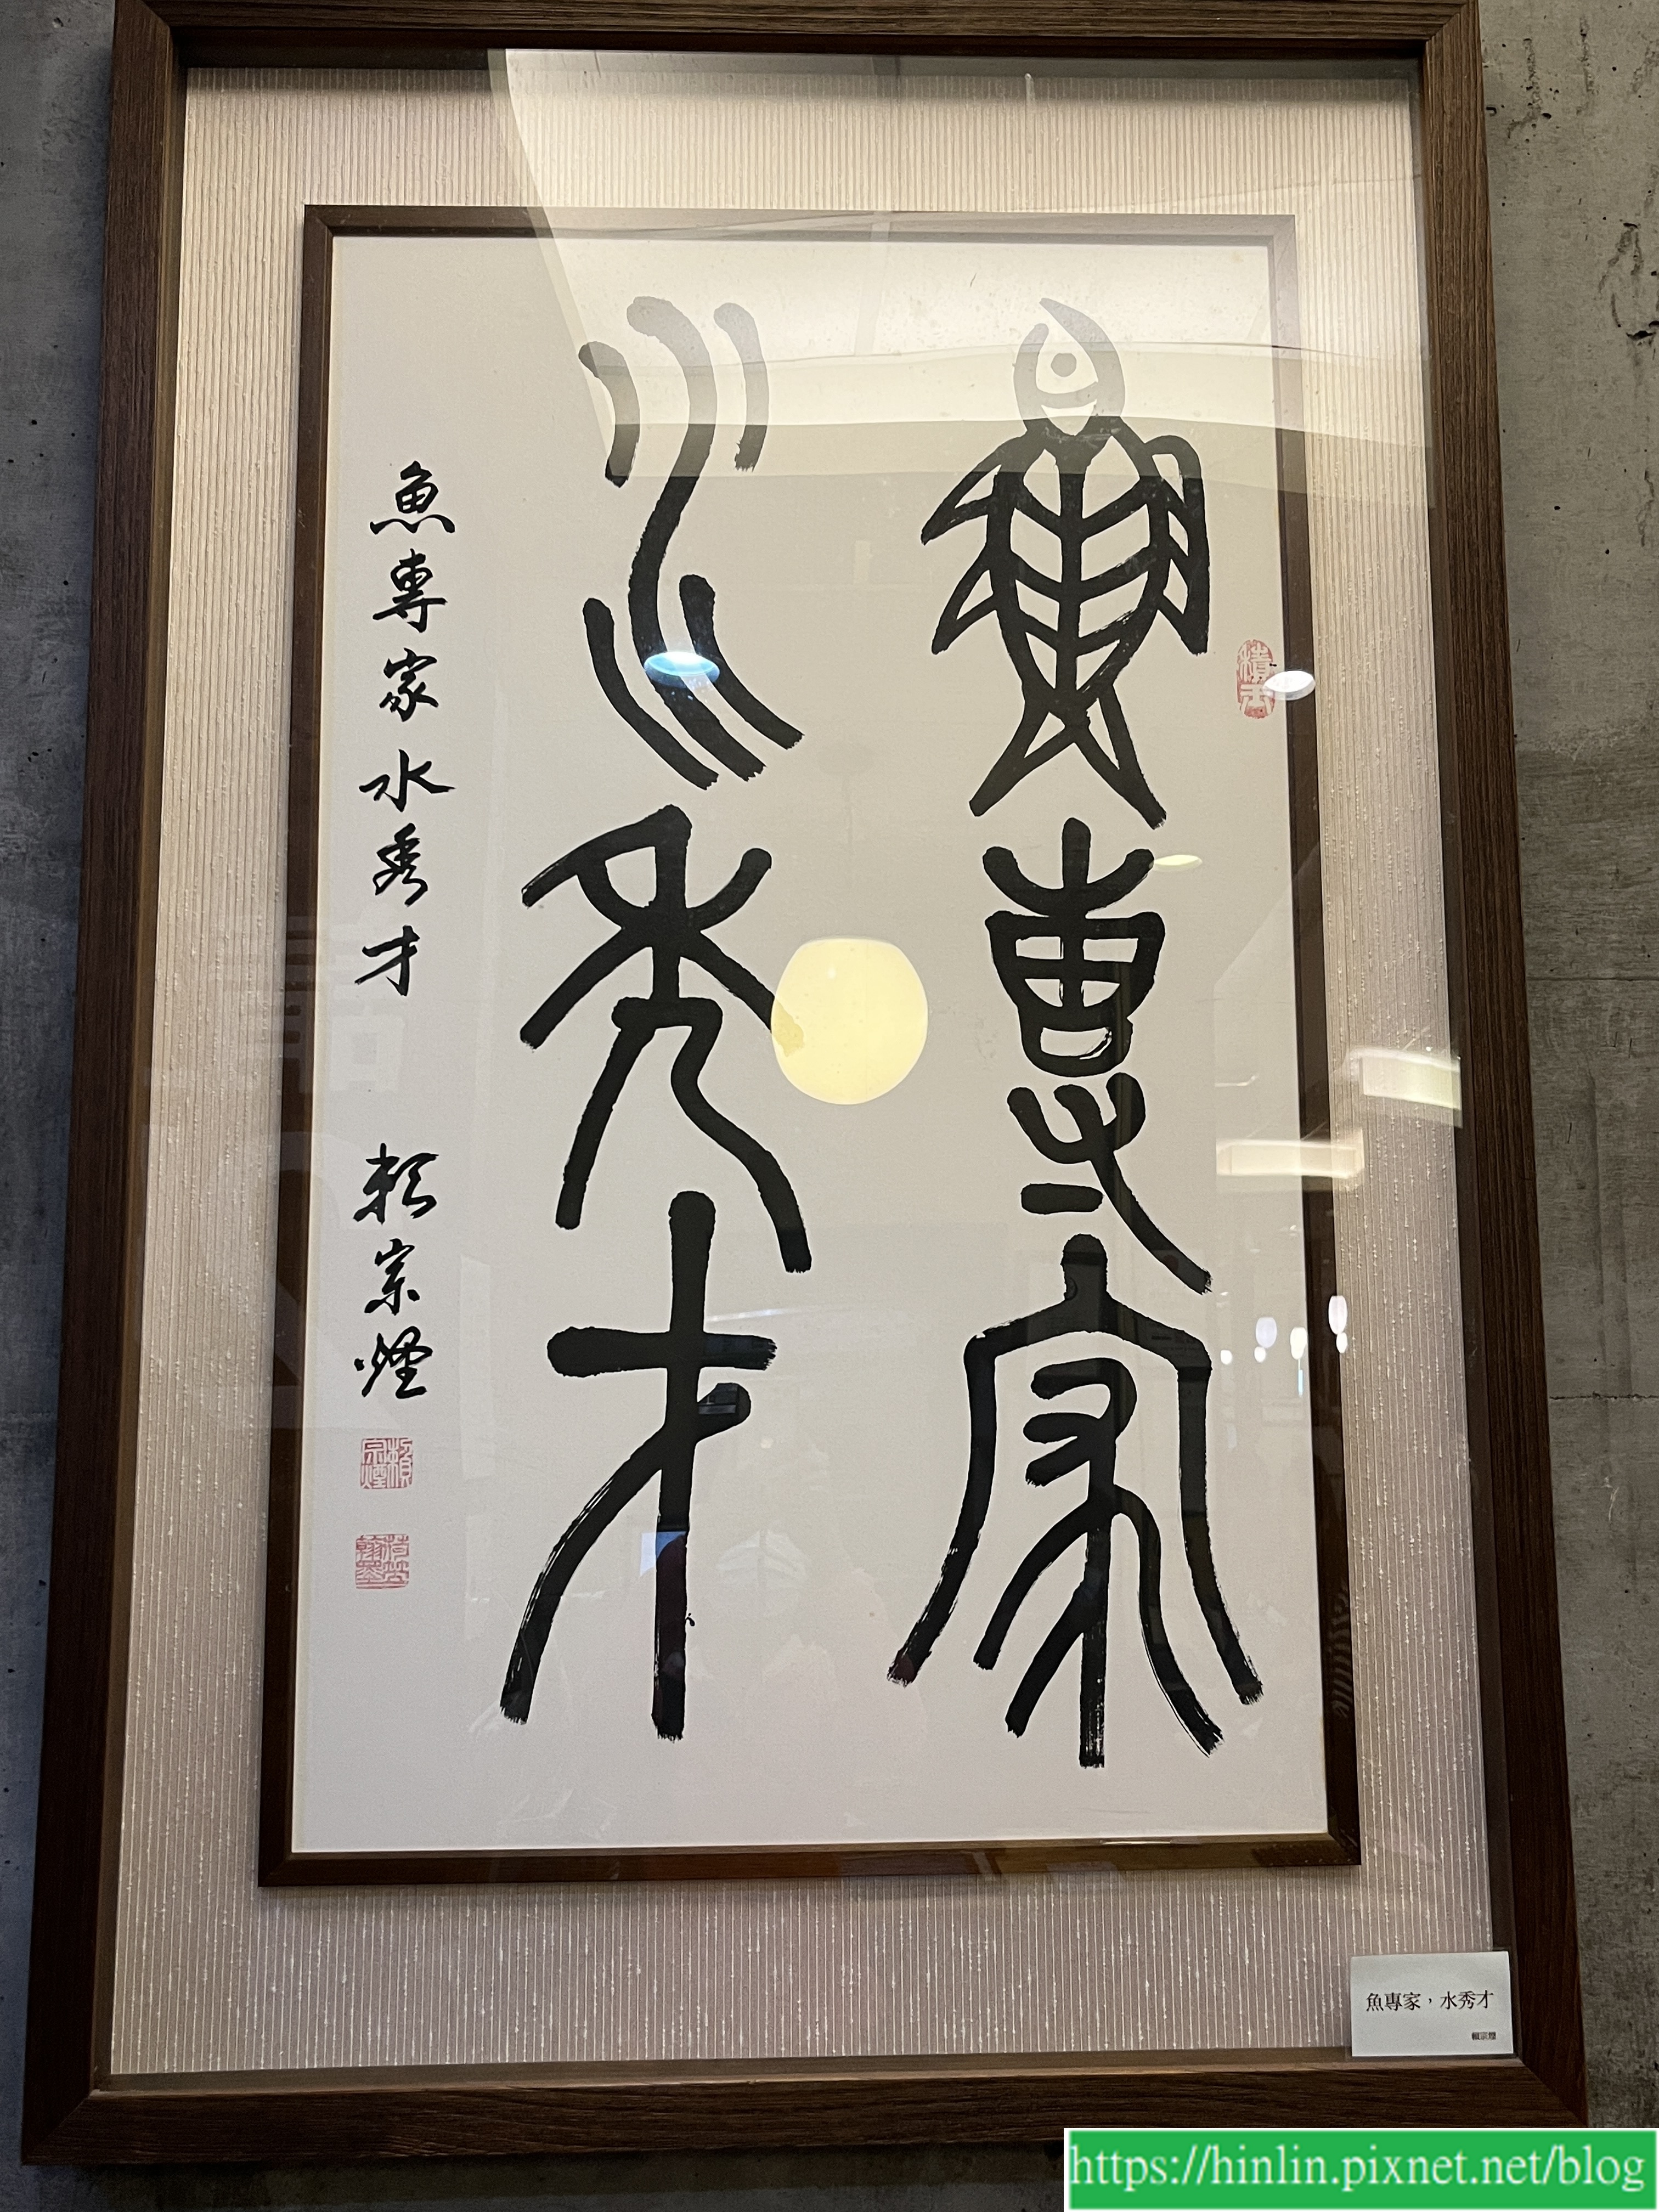 魚專家
水秀才
魚專家水秀才 賴宗煙
賴宗煙
魚專家，水秀才
賴宗煙
https://hinlin.pixnet.net/blog